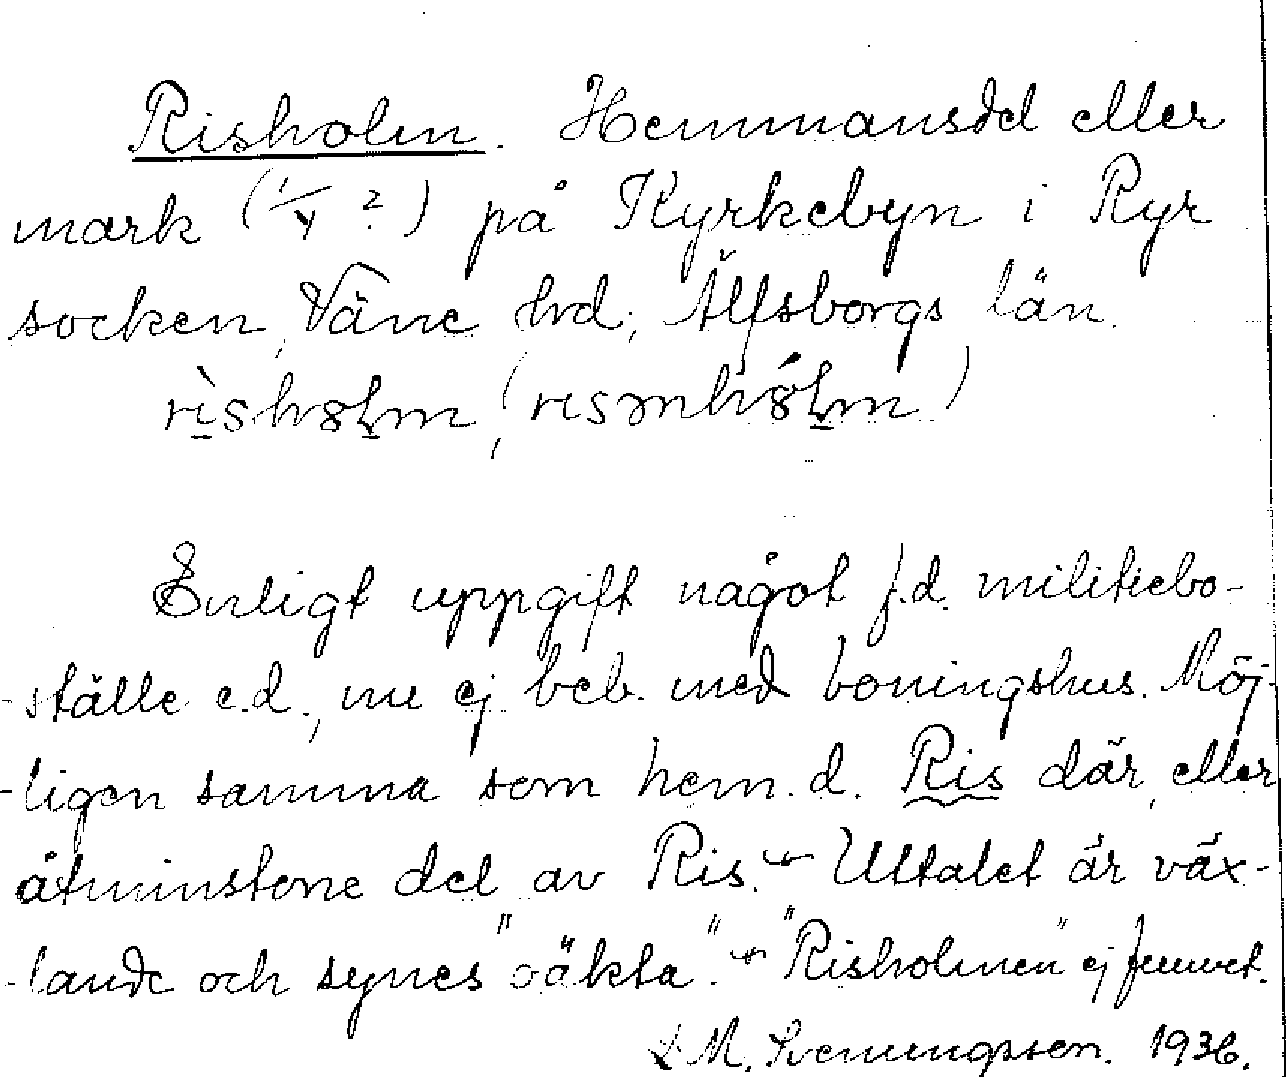 Risholm. Hemmansdel eller
mark (1/4 ?) på Kyrkebyn i Ryr
socken, Väne hd, Älfsborgs län.
Enligt uppgift något f.d. militiebo-
-ställe e.d., nu ej beb. med boningshus. Möj-
-ligen samma som hem.d. Ris där, eller
åtminstone del av Ris. - Uttalet är väx-
-lande och synes "oäkta". - "Risholmen" ej funnet.
M. Svenungsson. 1936.